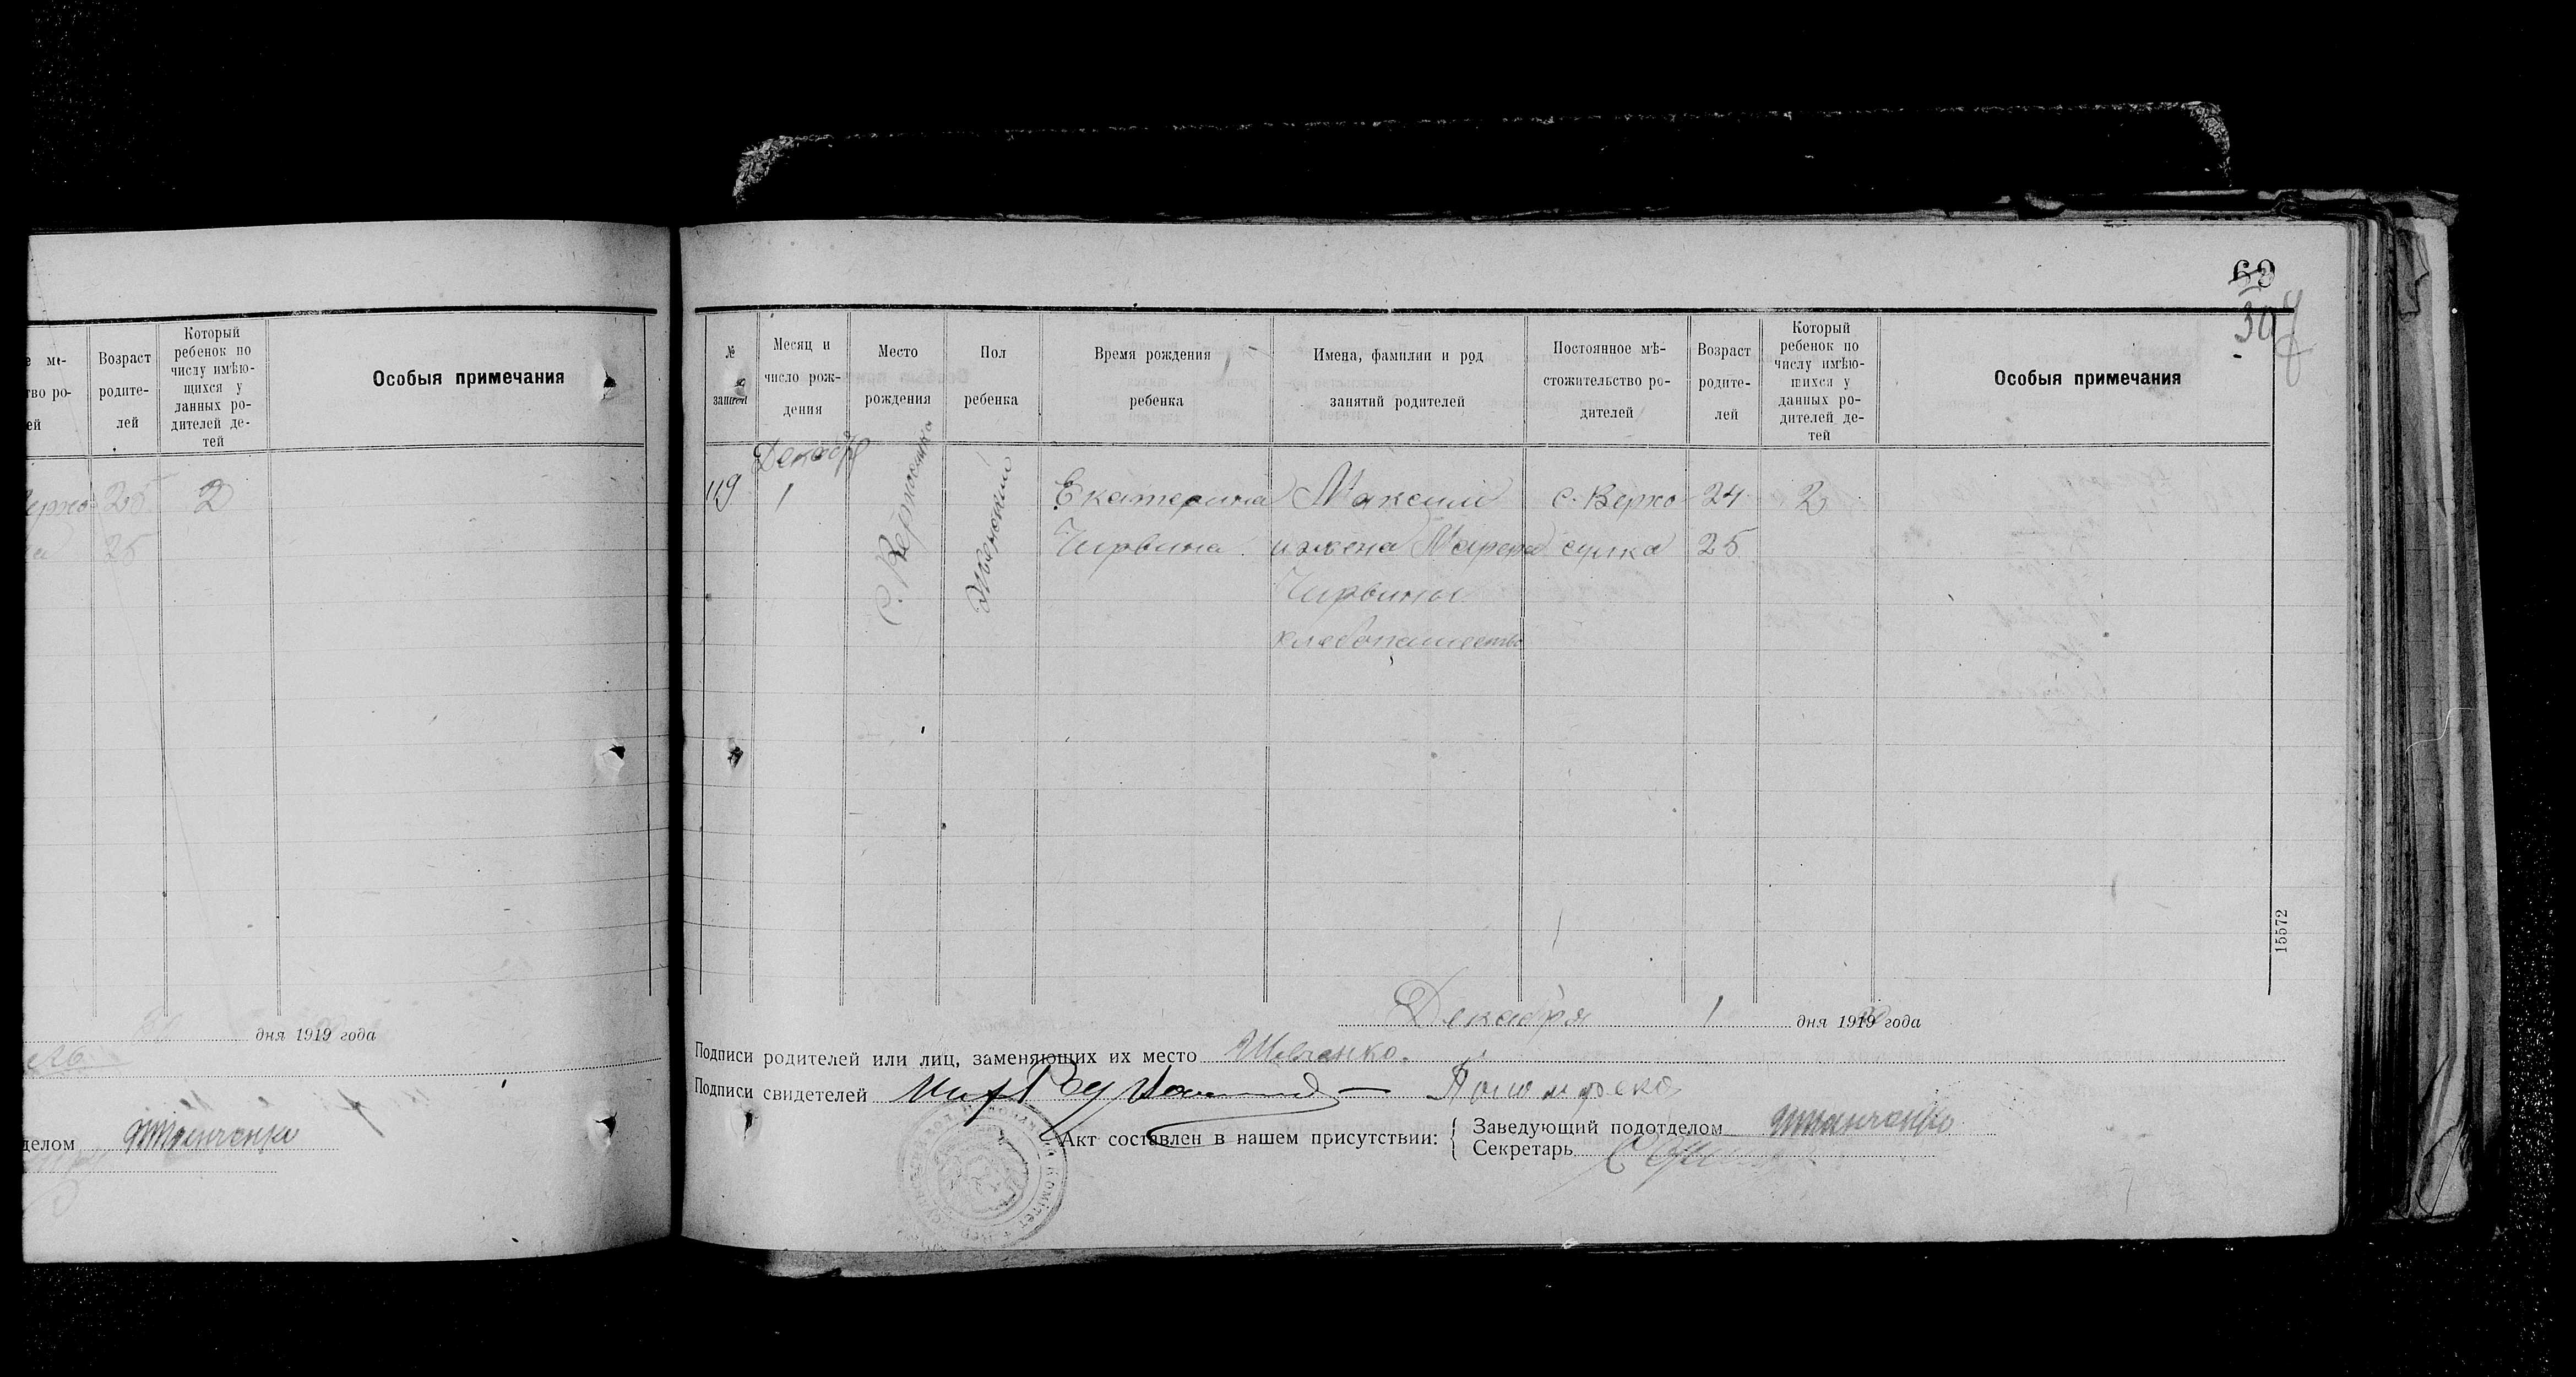 е ме-
тво ро-
ей
Возраст
родите-
лей
Который
ребенок по
числу имѣю-
щихся у
данных ро-
дителей де-
тей
Особыя примечания
25 2
25
дня 1919 года
делом
69
307
№
записи
Месяц и
число рож-
дения
Место
рождения
Пол
ребенка
Время рождения
ребенка
Имена, фамилии и род
занятий родителей
Постоянное мѣ-
стожительство ро-
дителей
Возраст
родите-
лей
Который
ребенок по
числу имѣю-
щихся у
данных ро-
дителей де-
тей
Особыя примечания
Декабр
119 1
Женский
Екатерина Максим с. Верхо 24 2
Чирвина и жена сулка 25
Чирвины
хлебопашество
15572
Декабря 1 дня 1919 года
Подписи родителей или лиц, заменяющих их место Шевченко.
Подписи свидетелей
Акт составлен в нашем присутствии:
Заведующий подотделом
Секретарь